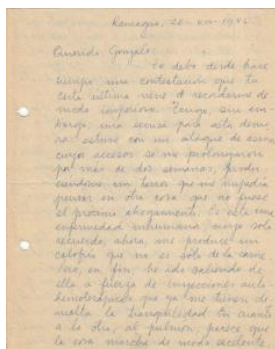 Rancagua, 20-VIII-1946.
Querido Gonzalo:
Te debo desde hace
tiempo una contestación que tu
carta última viene a recordarme de
modo imperioso. Tengo, sin em-
bargo, una excusa para esta demo-
ra: estuve con un ataque de asma
cuyos accesos se me prolongaron
por más de dos semanas,
un terror que me impedía
pensar en otra cosa que no fuese
el próximo ahogamiento. Es esta una
enfermedad cuyo solo
recuerdo, ahora, me produce un
calofrío que no es sólo de la carne.
Pero, en fin, he ido saliendo de
ella a fuerza de inyecciones auto-
hemoterápicas que ya me tienen de
vuelta la tranquilidad. En cuanto
a lo otro, al pulmón, parece que
la cosa marcha de modo excelente.